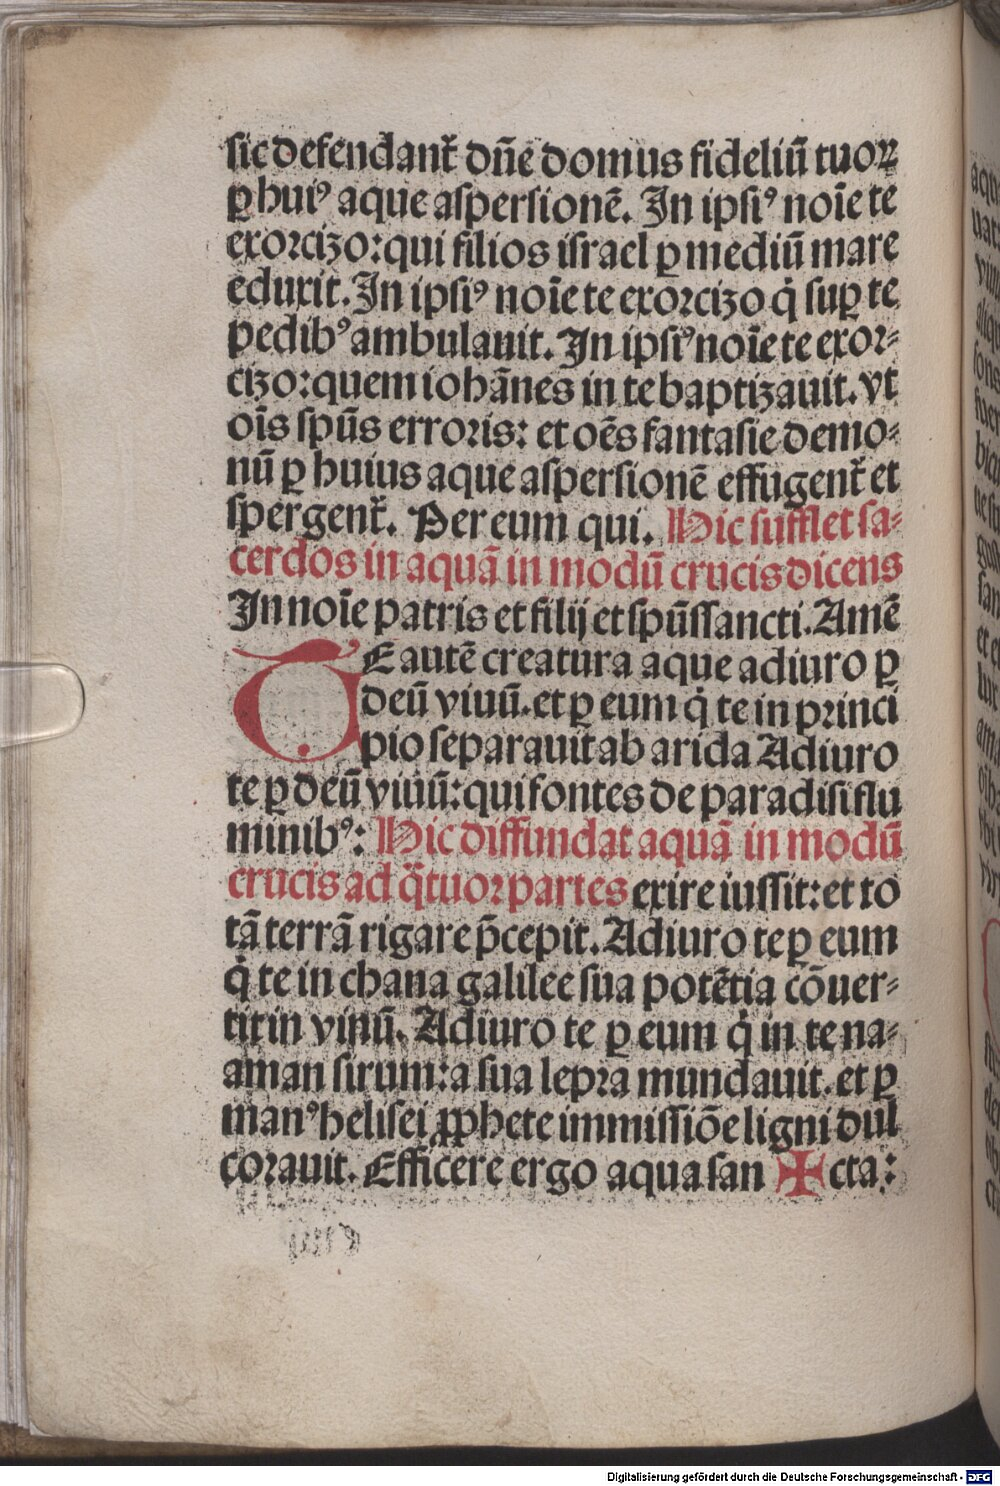 sic defendant᷑ dn̄e domus fideliū tuoꝝ
ꝑ huiꝰ aque aspersionē. In ipsiꝰ noīe te
exorcizo: qui filios israel ꝑ mediū mare
eduxit. In ipsiꝰ noīe te exorcizo q̇ suꝑ te
pedibꝰ ambulauit. In ipsiꝰ noīe te exor⸗
cizo: quem iohānes in te baptizauit. vt
oīs spūs erroris: et oēs fantasie demo⸗
nū ꝑ huius aque aspersionē effugent᷑ et
spergent᷑. Per eum qui. Hic sufflet sa⸗
cerdos in aquā in modū crucis dicens
In noīe patris et filij et spūssancti. Amē
TE autē creatura aque adiuro ꝑ
deū viuū. et ꝑ eum q̇ te in princi
pio separauit ab arida Adiuro
te ꝑ deū viuū: qui fontes de paradisi flu
minibꝰ: Hic diffundat aquā in modū
crucis ad q̄tuor partes exire iussit: et to
tā terrā rigare p̄cepit. Adiuro te ꝑ eum
q̇ te in chana galilee sua potētia cōuer⸗
tit in vinū. Adiuro te ꝑ eum q̇ in te na⸗
aman sirum: a sua lepra mundauit. et ꝑ
manꝰ helisei ꝓphete immissiōe ligni dul
corauit. Efficere ergo aqua san ✠ cta:
aqu
Digitalisierung gefördert durch die Deutsche Forschungsgemeinschaft - DFG